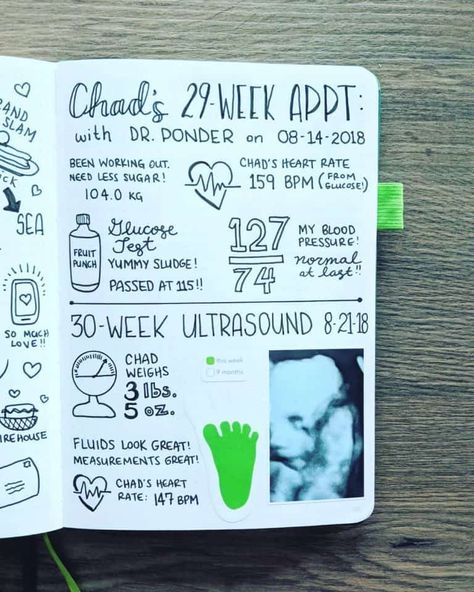 RAND
SLAM
CK
SEA
SO MUCH
LOVE!!
IREHOUSE
Chad's 29-WEEK APPT:
with DR. PONDER on 08-14-2018
BEEN WORKING OUT.
NEED LESS SUGAR!
104.0 KG
CHAD'S HEART RATE
159 BPM (FROM GLUCOSE!)
FRUIT
PUNCH
Glucose
Test
YUMMY SLUDGE!
PASSED AT 115!!
127
74
MY BLOOD
PRESSURE!
normal
at last!!
30-WEEK ULTRASOUND 8-21-18
CHAD
WEIGHS
3 lbs.
5 oz.
this week
9 months
FLUIDS LOOK GREAT!
MEASUREMENTS GREAT!
CHAD'S HEART
RATE: 147 BPM